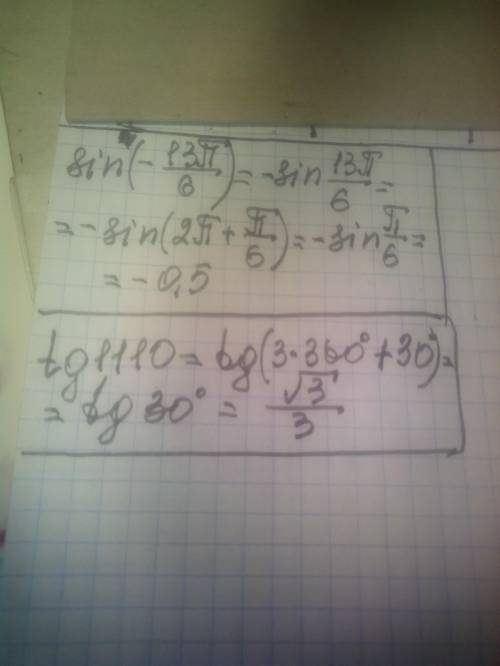 sin(-13π/6) = -sin 13π/6 =
= -sin(2π + π/6) = -sin π/6 =
= -0,5
tg 1110 = tg(3·360° + 30°) =
= tg 30° = √3/3